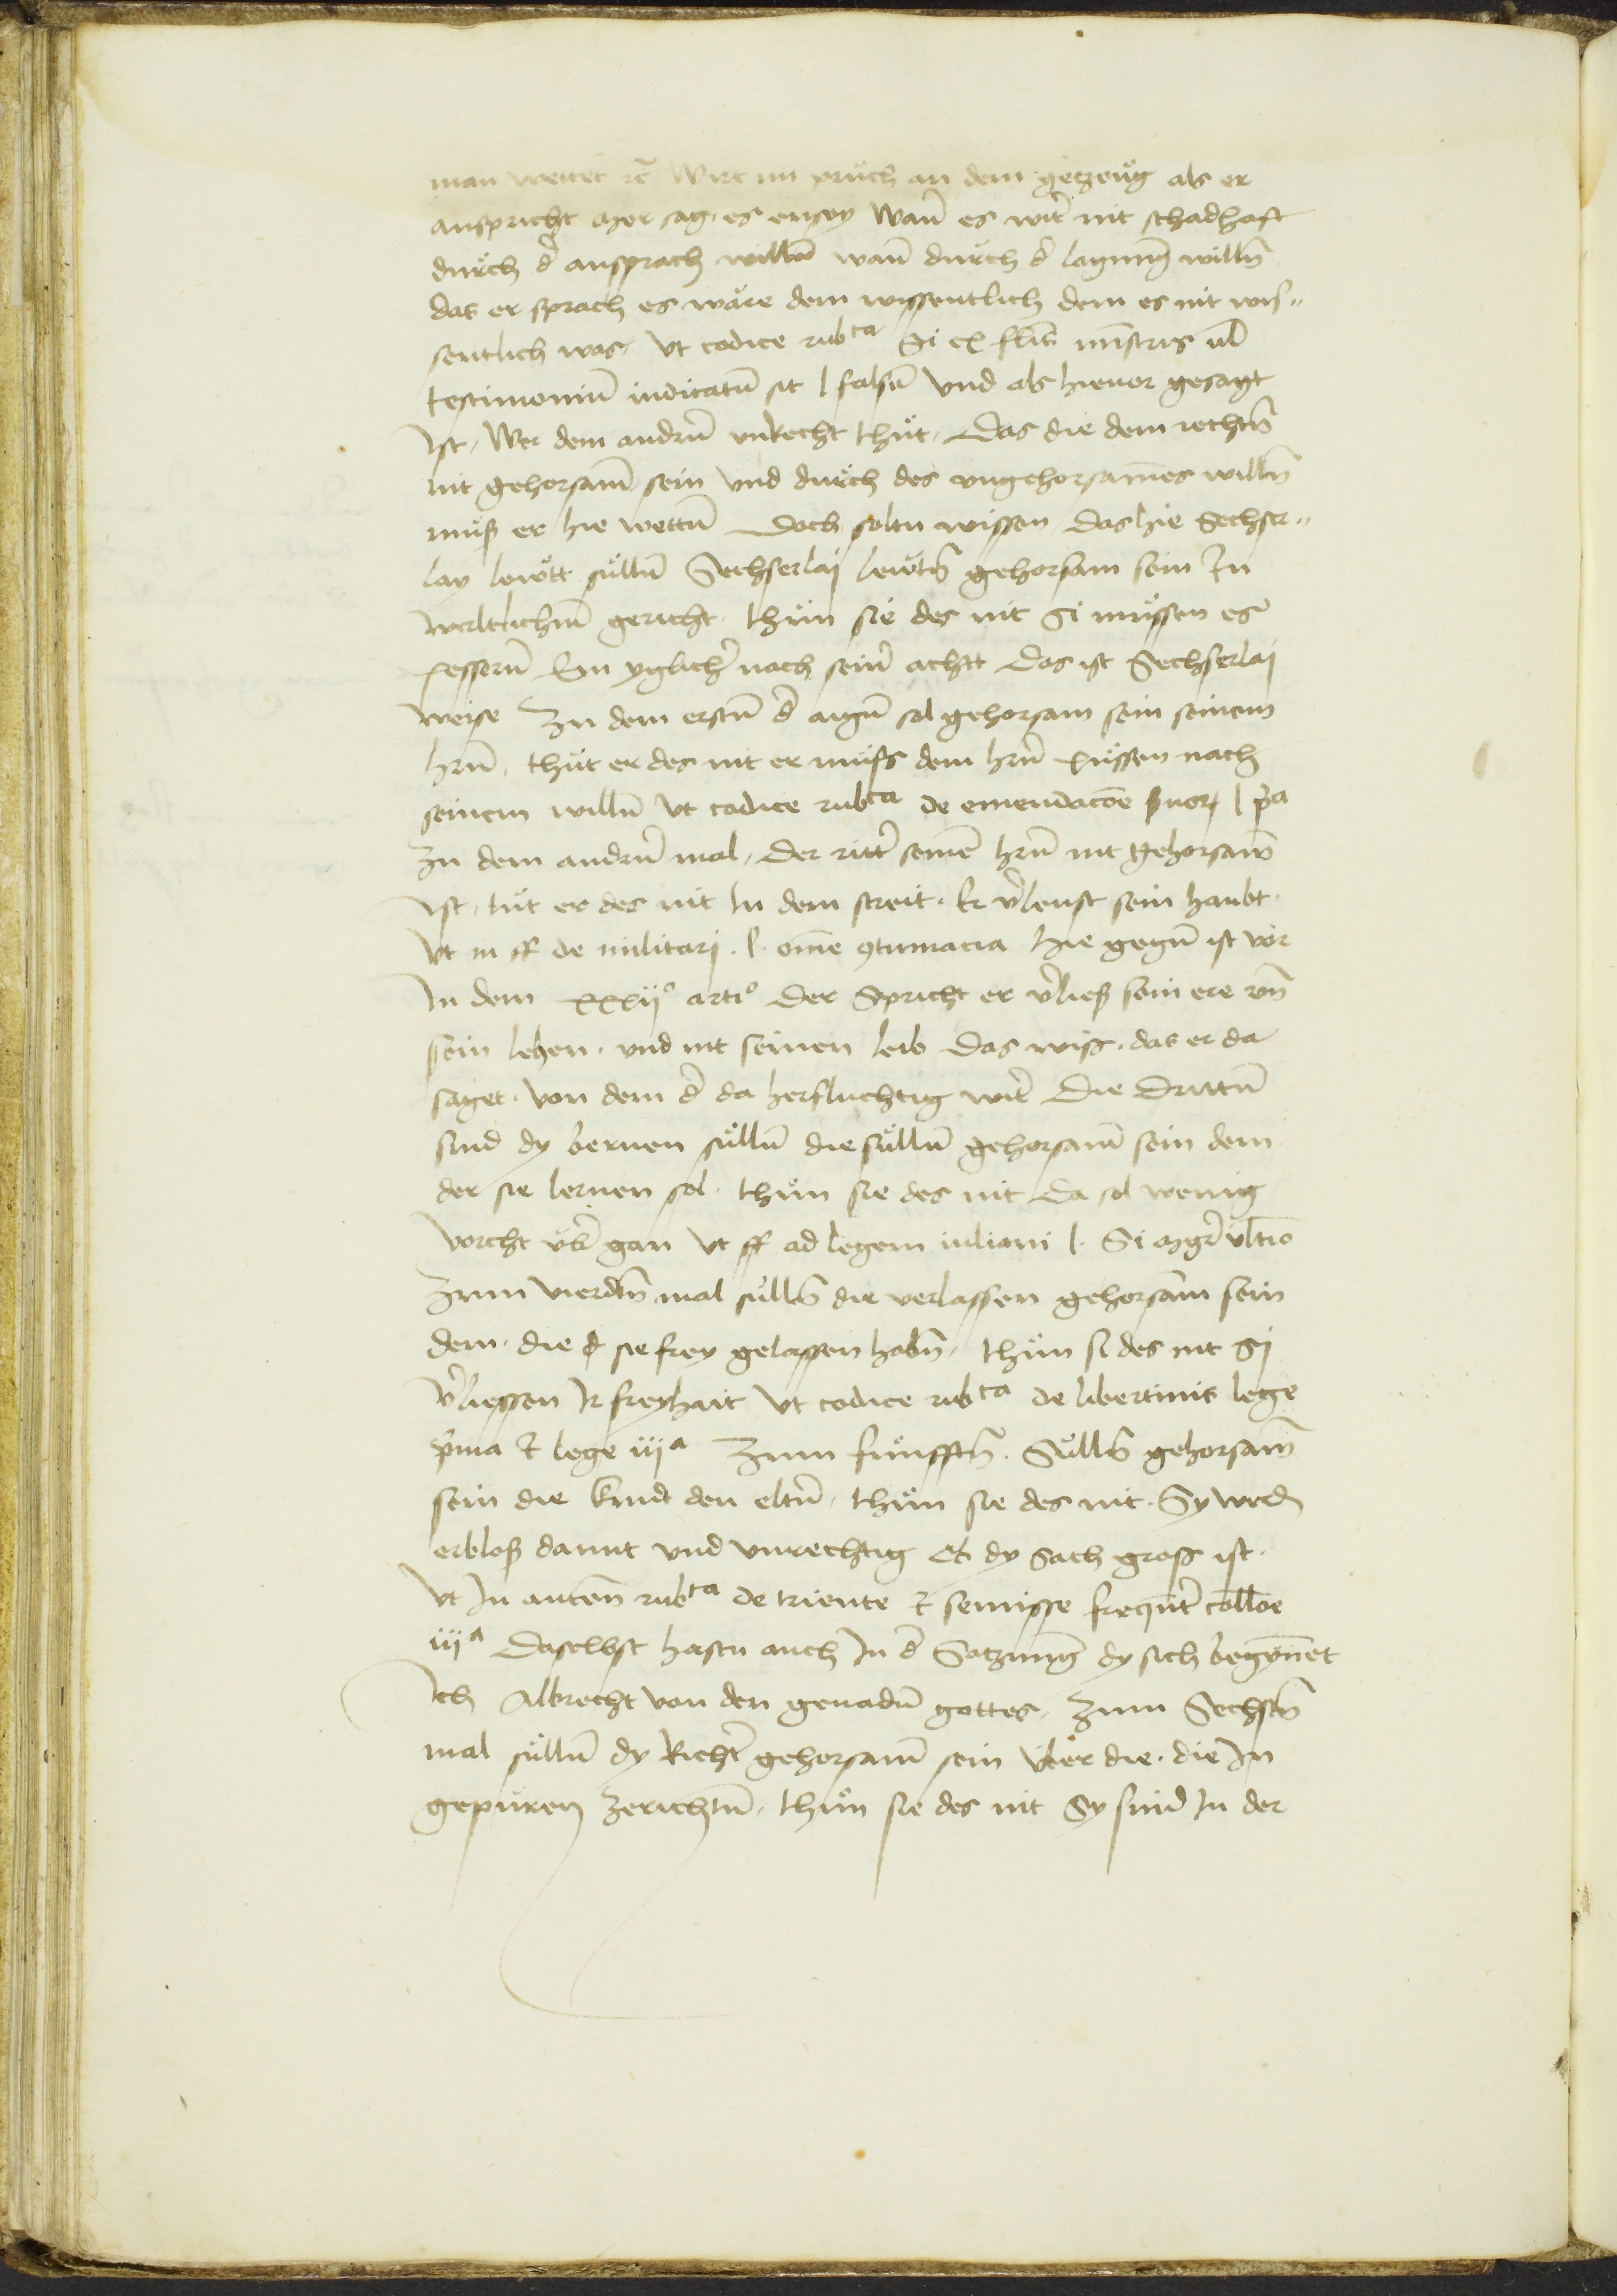 man wettet rc̄ Wirt im pruch an dem getzeüg als er
anspricht oder sag es ensey Wan̄ es wirt nit schadhaft
durch d̄ ansprach willen wan̄ durch d̄ lognung willn̄
das er sprach es wäre dem wissentlich dem es nit wis„
sentlich was. Vt codice rubca Si ex fl̄is
testimoniū iudicatū sit l falsū vnd als hieuor gesagt
Ist. Wer dem andrn̄ vnrecht thüt. Das die dem rechtn̄
nit gehorsam̄ sein vnd durch des vngehorsames willn̄
muß er hie wettn̄ Doch soltu wissen das hie Sechser„
lay lewtt sullen Sechserlaj lewtn̄ gehorsam sein In
werltlichm̄ gericht. thün sie des nit Si müssen es
pessern̄ Ein yglicher nach seiner achtt Das ist Sechserlaj
weise Zu dem erstn̄ d̄ aign̄ sol gehorsam sein seinem
hrn̄. thüt er des nit er müss dem hrn̄ püssen nach
seinem willn̄ Vt codice rubca de emendacōe l p̄a
Zu dem andrn̄ mal. Der ritt̄ seinē hrn̄ nit gehorsam̄
Ist. tüt er des nit In dem streit. Er v̄leust sein haubt.
Vt in ff de militari. l. om̄e 9tumacia hie gegn̄ ist vor
In dem xxxijo artio Der Spricht er v̄ließ sein ere vn̄
sein lehen. vnd nit seinen leib Das wiss. das er da
saget. von dem d̄ da herfluchtig wirt Die Drittn̄
sind dy lernen süllen die süllen gehorsam̄ sein dem
der sie lernen sol. thün sie des nit Da sol wenig
vorcht üb̄ gan Vt ff ad legem iuliani l. Si
Zum vierdn̄ mal sulln̄ die verlassen gehorsam sein
dem. die sie frey gelassen habn̄. thün si des nit Si
v̄liessen Ir freyhait Vt codice rubca de libertinis lege
p̄ma et lege iija Zum fünfftn̄. Sülln̄ gehorsam̄
sein die kind den eltn̄. thün sie des nit. Sy werdn̄
erbloß damit vnd vnrechtig Ob dy sach gross ist.
Vt In auten̄ rubca de triente et semisse freqnt̄ colloe
iija Daselbst hastu auch In d̄ Satzung dy sich begynnet
Ich Albrecht von den genadn̄ gottes. Zum Sechstn̄
mal süllen dy Richt̄ gehorsam̄ sein über die. die In
gepüren zerichtn̄. thün sie des nit Sy sind In der